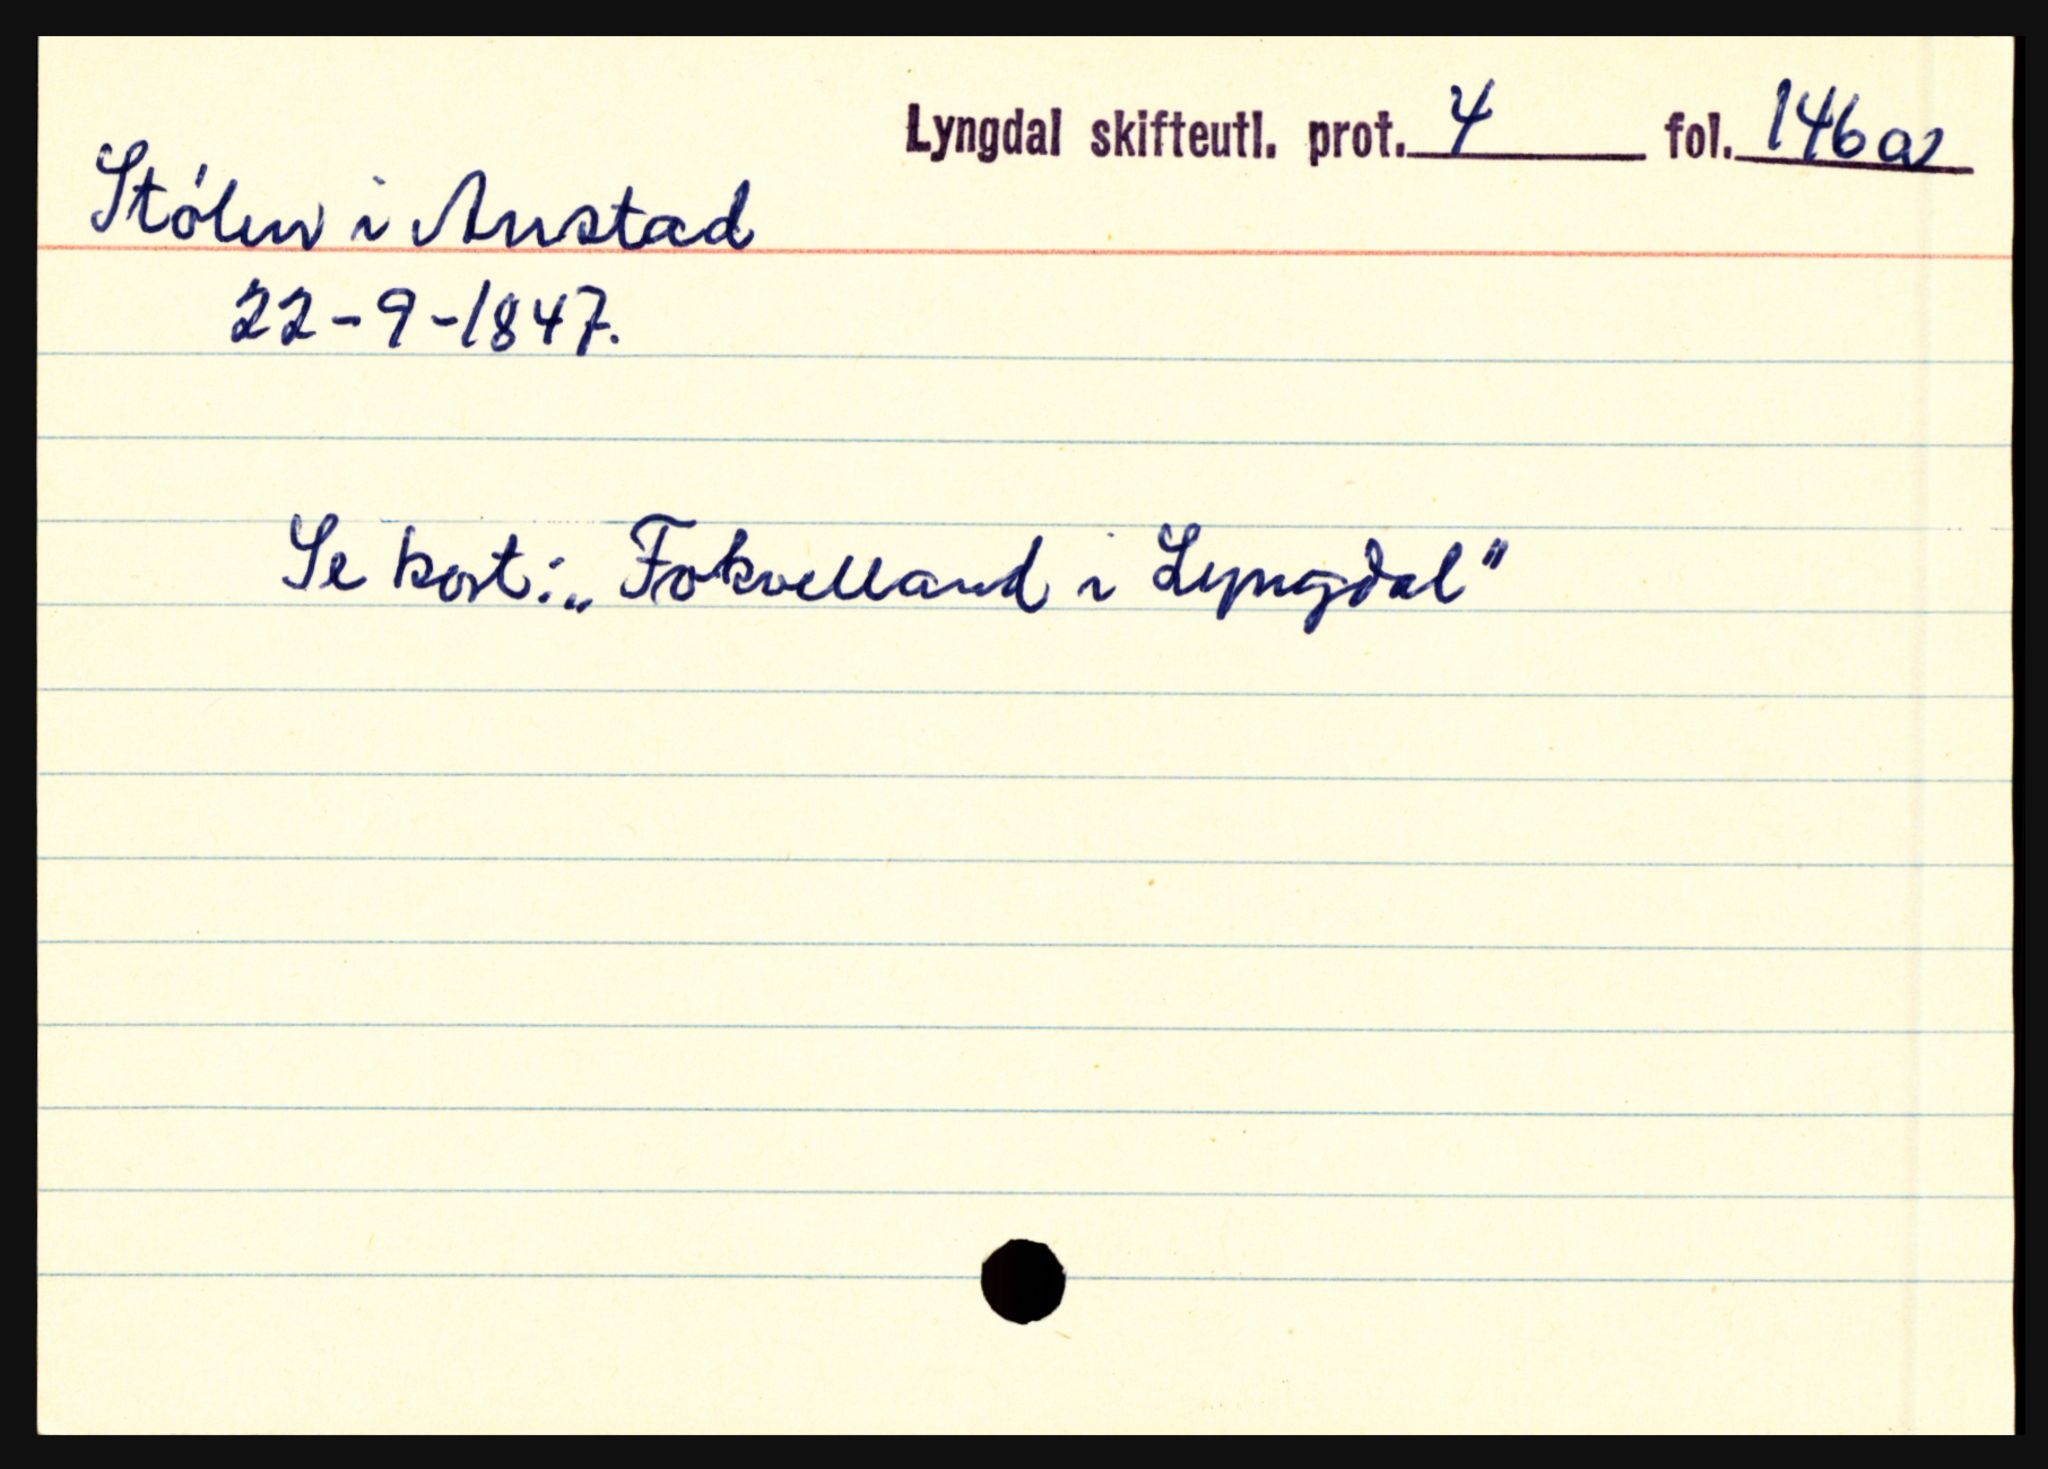 Lyngdal skifteutl. prot. 4 fol. 146a
Stólen i Austad
22-9-1847.
Se kort: „Fokvelland i Lyngdal"